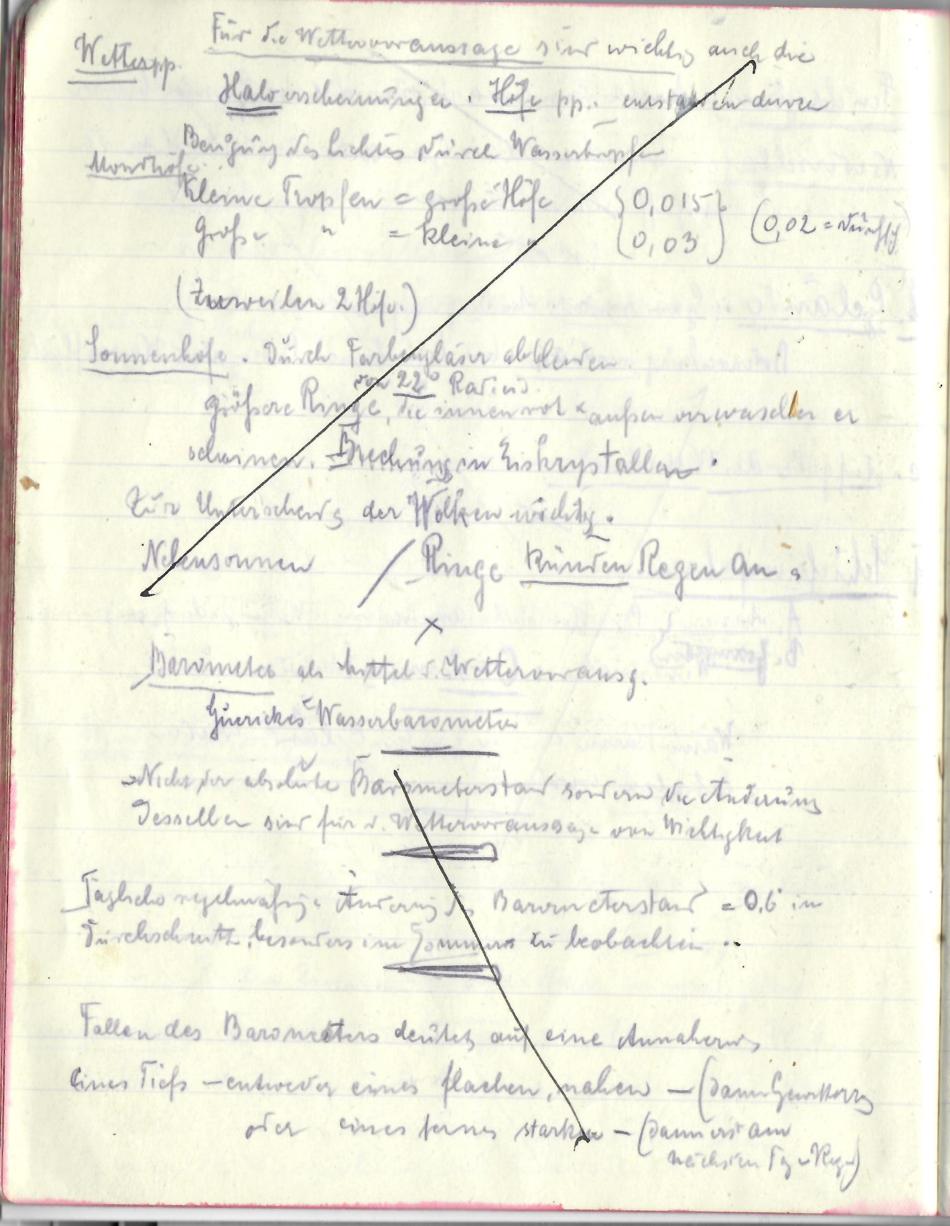 Für die Wettervoraussage sind wichtig auch die
Wetter pp.
Haloerscheinungen. Höfe pp. entstehen durch
Beugung des Lichtes durch Wassertropfen
Mondhöfe.
Kleine Tropfen = große Höfe {0,015}
Große " = kleine " {0,03} (0,02 =
(Zuweilen 2 Höfe.)
Sonnenhöfe. Durch Farbengläser abblenden.
von 22° Radius
größere Ringe, die innen rot außen verwaschen er
scheinen. Brechung in Eiskrystallen.
Zur Unterscheidg der Wolken wichtig.
Nebensonnen / Ringe künden Regen an.
×
Barometer als Mittel d. Wettervorausg.
Guerickes Wasserbarometer
Nicht der absolute Barometerstand sondern die Änderung
desselben sind für d. Wettervoraussage von Wichtigkeit
Tägliche regelmäßige Änderung des Barometerstand = 0,6 im
Durchschnitt, besonders im Sommer zu beobachten ..
Fallen des Barometers deutet auf eine Annäherung
eines Tiefs – entweder eines flachen, nahen – (dann
oder eines fernes starken – (dann erst am
nächsten Tag Regen)